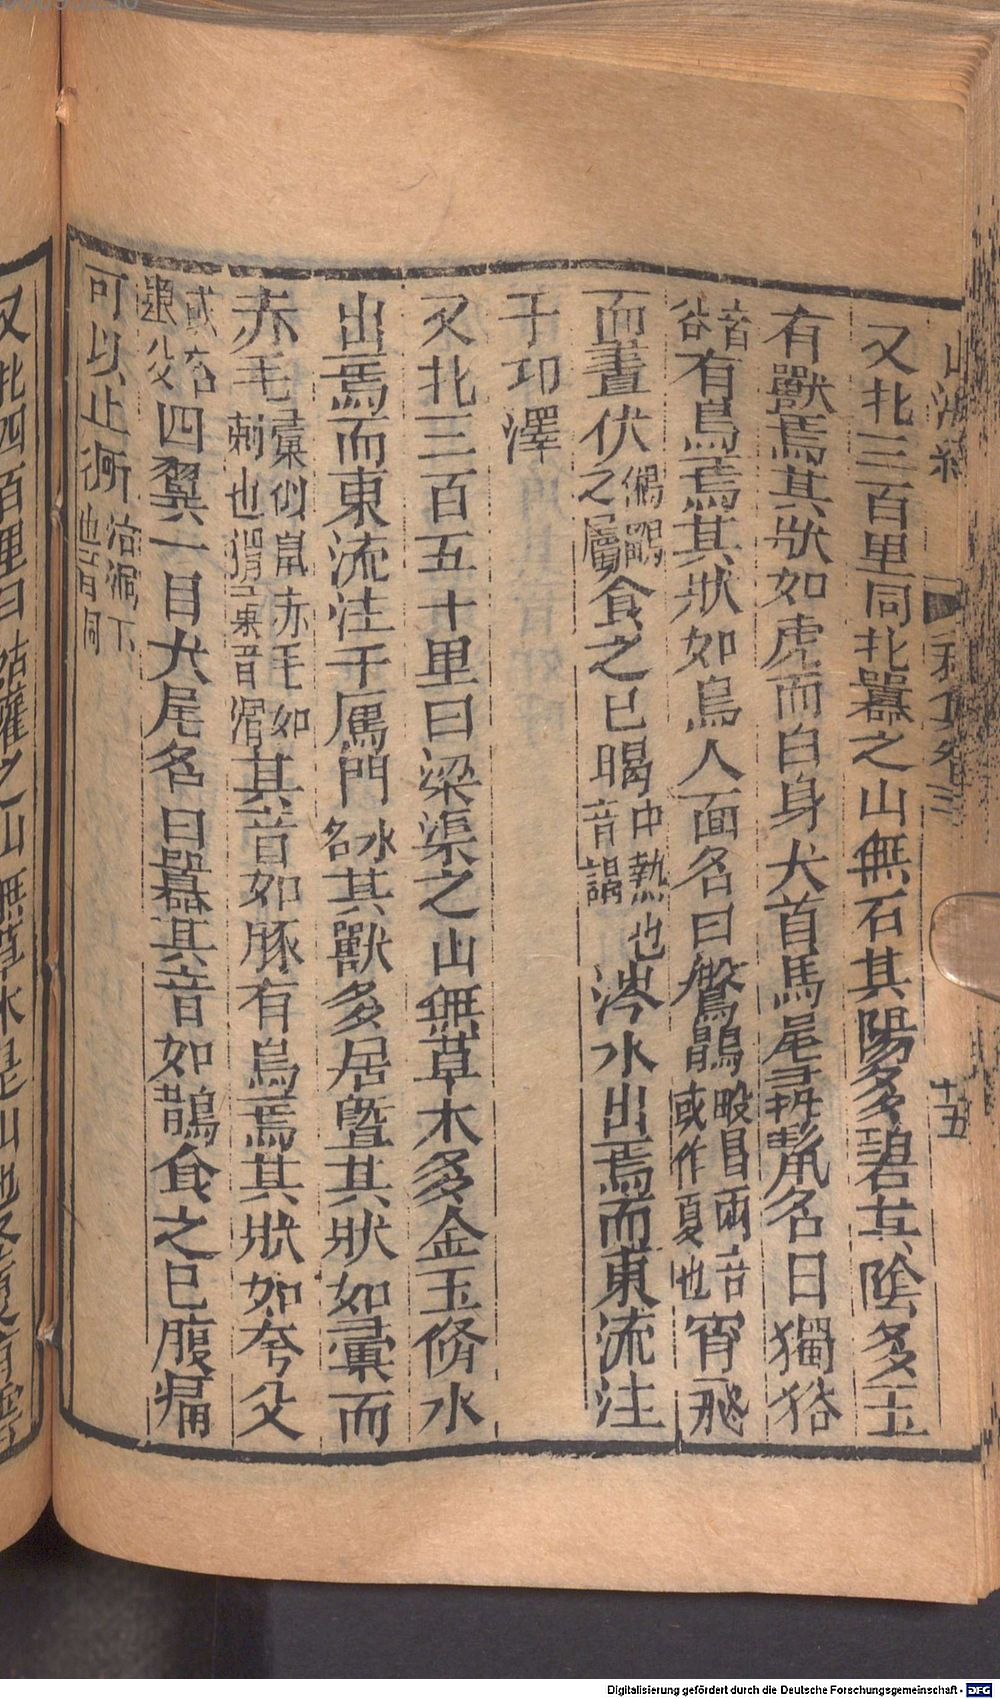 又北三百里同北嚻之山無石其陽多碧其陰多玉
有獸焉其狀如虎而白身犬首馬尾彘鬣名曰獨𤞞
音谷有鳥焉其狀如烏人面名曰鷩鶥般冒兩音或作夏也宵飛
而晝伏鵂鶹之屬食之已暍中熱也音謁涔水出焉而東流注
于卭澤
又北三百五十里曰梁渠之山無草木多金玉脩水
出焉而東流注于鴈門水名其獸多居曁其狀如彙而
赤毛彙似鼠赤毛如刺也猬彙音渭其音如豚有鳥焉其狀如夸父
或作舉父四翼一目犬尾名曰嚻其音如鵲食之已腹痛
可以止衕治洞下也音同
山海經 卷三
十五
又北四百里曰姑灌之山無草木是山也冬夏有雪
Digitalisierung gefördert durch die Deutsche Forschungsgemeinschaft - DFG